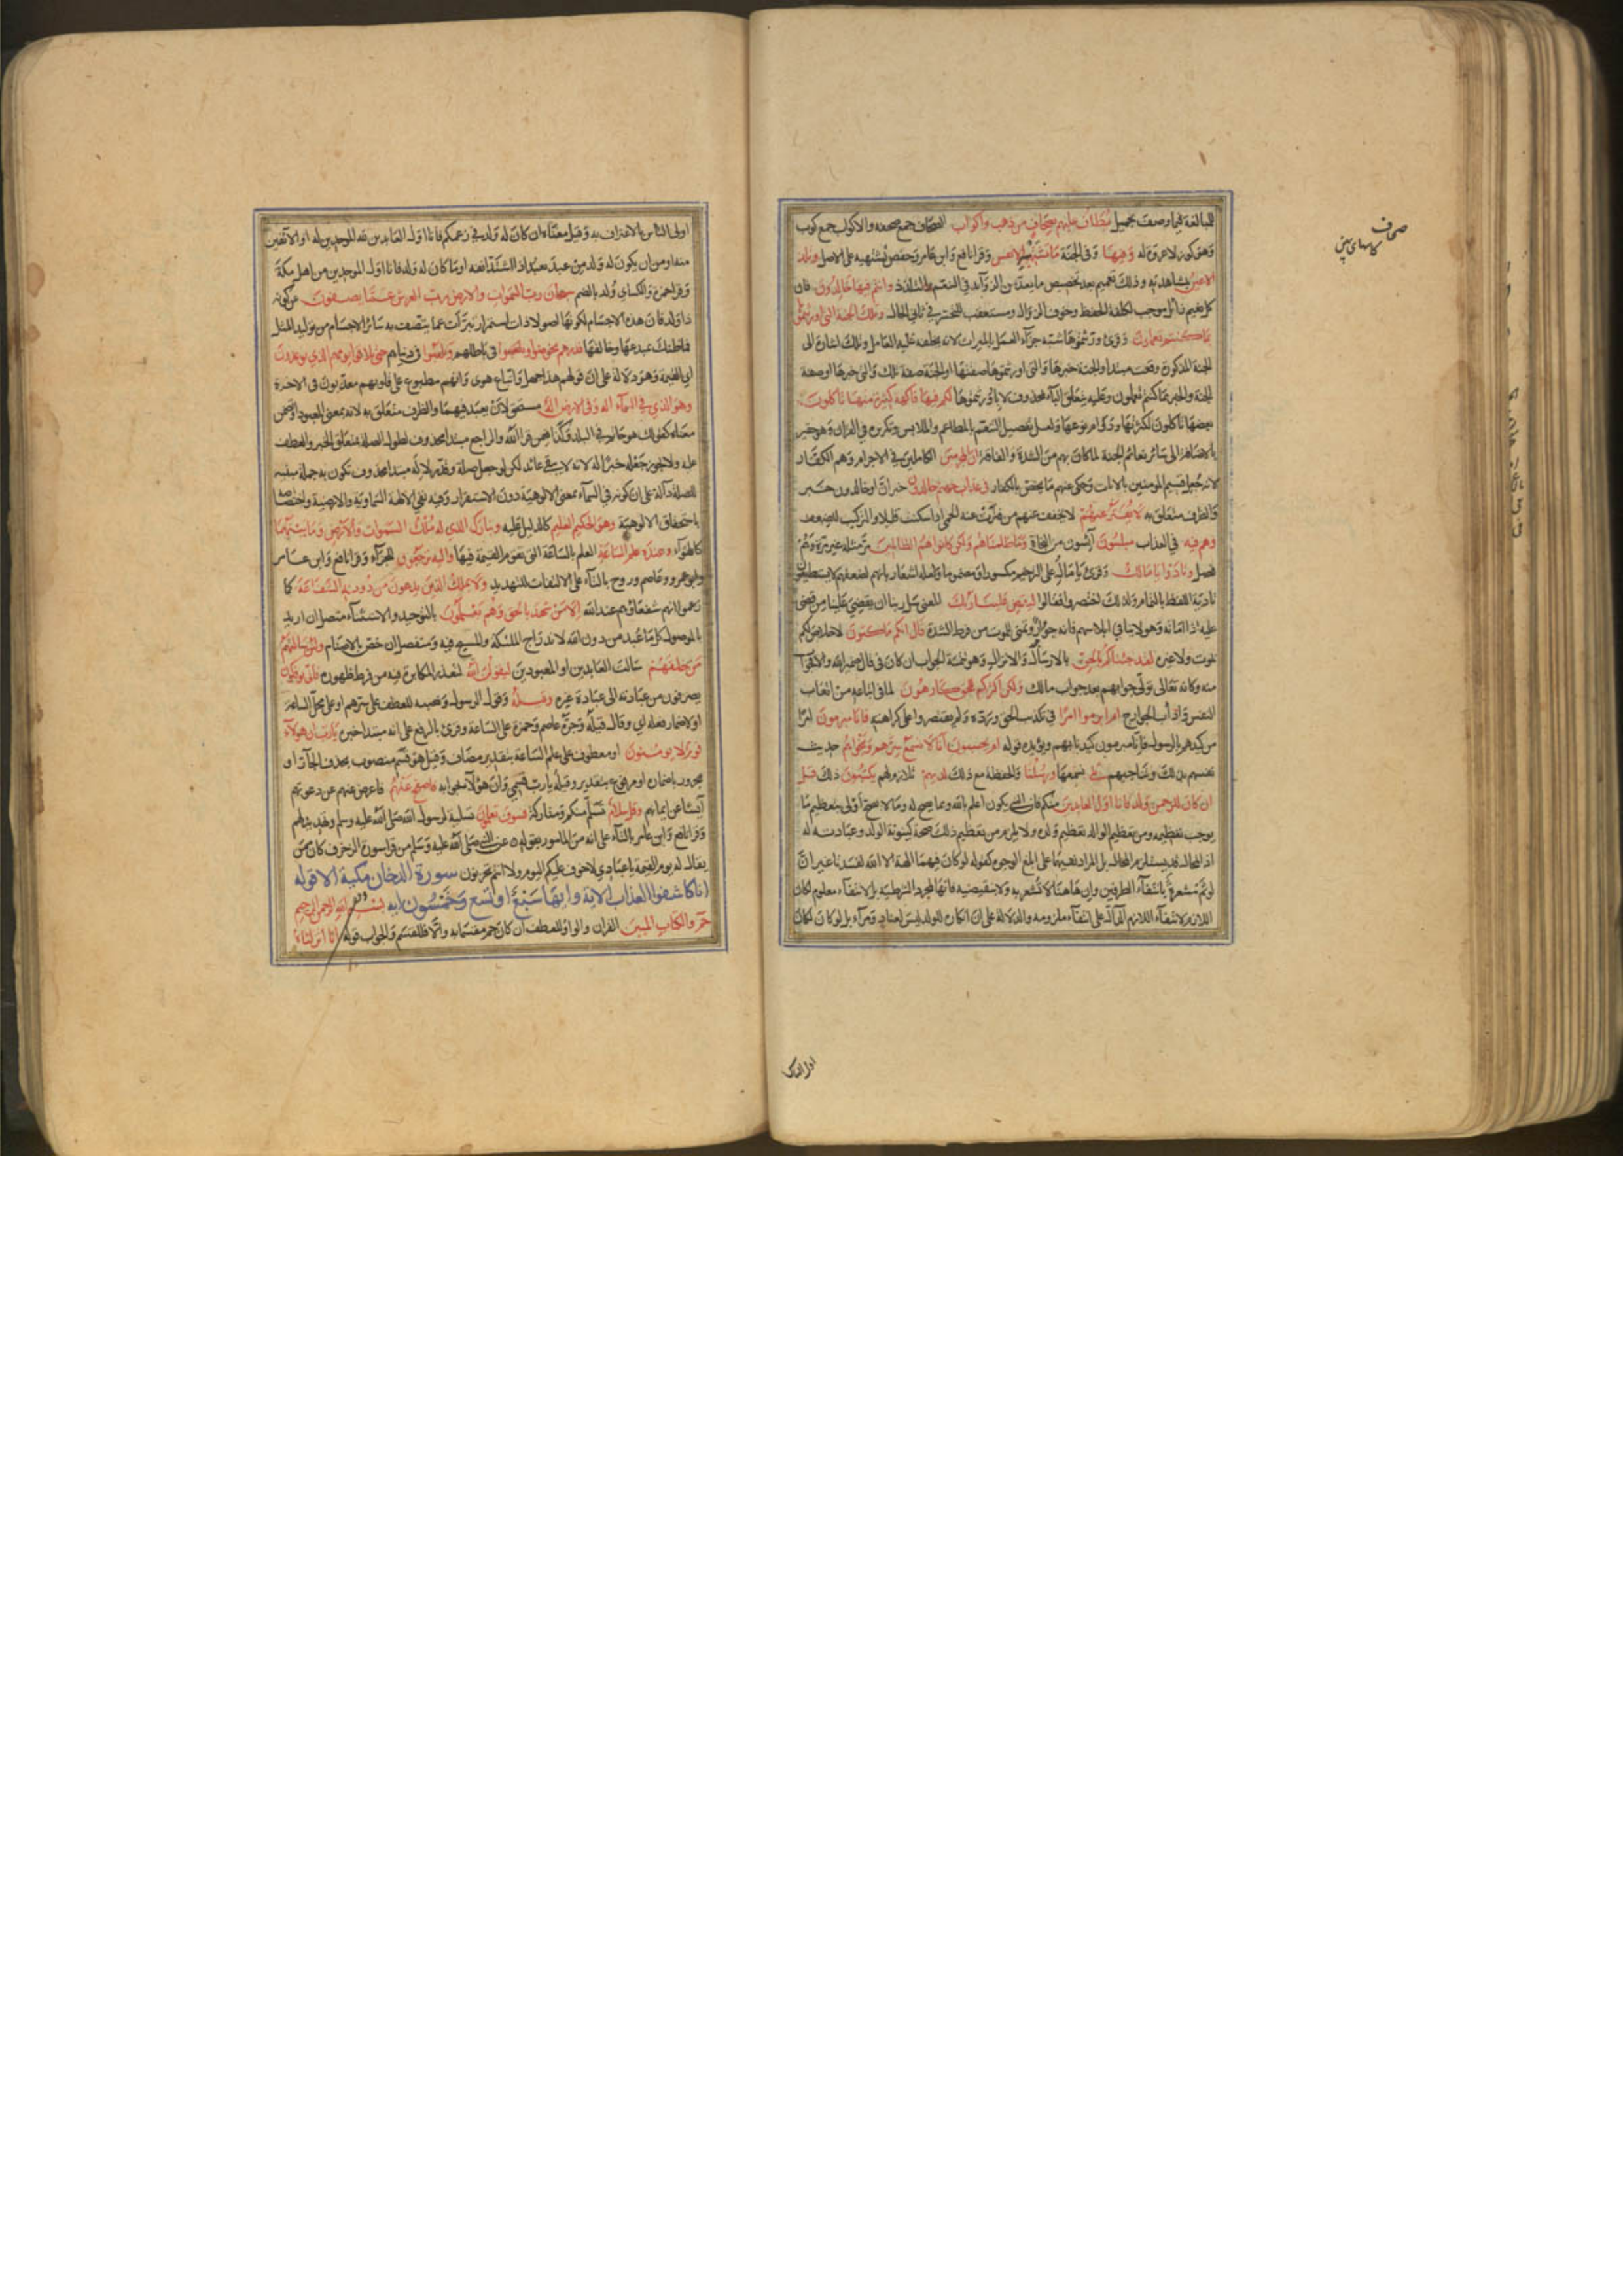 للمبالغة فيما وصف بجميل يطاف عليهم بصحاف من ذهب واكواب الصحاف جمع صحفة والاكواب جمع كوب
وهو كوز لا عروة له وفيها وفي الجنة ما تشتهيه الانفس وقرأ نافع وابن عامر وحفص تشتهيه على الاصل وتلذ
الاعين بمشاهدته وذلك تعميم بعد تخصيص ما يعد من الزوآئد في التنعم والتلذذ وانتم فيها خالدون فان
كل نعيم زائل موجب لكلفة الحفظ وخوف الزوال ومستعقب للتحسر في ثاني الحال وتلك الجنة التي اورثتموها
بما كنتم تعملون وقرئ ورثتموها شبه جزآء العمل بالميراث لانه يخلفه عليه العامل وتلك اشارة الى
الجنة المذكورة وقعت مبتدا والجنة خبرها والتي اورثتموها صفتها او الجنة صفة تلك والتي خبرها او صفة
الجنة والخبر بما كنتم تعملون وعليه يتعلق الباء بمحذوف لا باورثتموها لكم فيها فاكهة كثيرة منها تاكلون
بعضها تاكلون لكثرتها ودوام نوعها ولعل تفصيل التنعم بالمطاعم والملابس وتكريره في القران وهو حقير
بالاضافة الى سائر نعائم الجنة لما كان بهم من الشدة والفاقة ان المجرمين الكاملين في الاجرام وهم الكفار
لانه جعل قسيم المومنين بالايات وحكى عنهم ما يخص بالكفار في عذاب جهنم خالدون خبر ان او خالدون خبر
والظرف متعلق به لا يفتر عنهم لا يخفف عنهم من فترت عنه الحمى اذا سكنت قليلا والتركيب للضعف
وهم فيه في العذاب مبلسون آيسون من النجاة وما ظلمناهم ولكن كانوا هم الظالمين مر مثله غير مرة وهم
فصل ونادوا يا مالك وقرئ يا مال على الترخيم مكسورا ومضموما ولعله اشعار بانهم لضعفهم لا يستطيعون
تادية اللفظ بالتمام ولذلك اختصروا فقالوا ليقض علينا ربك المعنى سل ربنا ان يقضي علينا من قضى
عليه اذا اماته وهو لا ينافي ابلاسهم فانه جؤار وتمني للموت من فرط الشدة قال انكم ماكثون لا خلاص لكم
بموت ولا غيره لقد جئناكم بالحق بالارسال والانزال وهو تتمة الجواب ان كان في قال ضمير الله والا فجواب
منه وكانه تعالى تولى جوابهم بعد جواب مالك ولكن اكثركم للحق كارهون لما في اتباعه من اتعاب
النفس وآداب الجوارح ام ابرموا امرا في تكذيب الحق ورده ولم يقتصروا على كراهته فانا مبرمون امرا
من كيدهم بالرسول فانا مبرمون كيدنا بهم ويؤيده قوله ام يحسبون انا لا نسمع سرهم ونجواهم حديث
نفسهم بذلك وتناجيهم بلى نسمعها ورسلنا والحفظة مع ذلك لديهم ملازموهم يكتبون ذلك قل
ان كان للرحمن ولد فانا اول العابدين منكم فان النبي يكون اعلم بالله وبما يصح له وما لا يصح واولى بتعظيم ما
يوجب تعظيمه ومن تعظيم الوالد تعظيم ولده ولا يلزم من ذلك صحة كينونة الولد وعبادته له
اذ المحال قد يستلزم المحال بل المراد نفيهما على ابلغ الوجوه كقوله لو كان فيهما الهة الا الله لفسدتا غير ان
لو ثمة مشعرة بانتفآء الطرفين وان هاهنا لا تشعر به ولا بنقيضه فانها لمجرد الشرطية بل الانتفآء معلوم لكان
اللازم لانتفآء اللازم الدال على انتفآء ملزومه والدلالة على ان انكاره للولد ليس لعناد ومرآء بل لو كان لكان
صحاف
اولى الناس
اولى الناس بالاعتراف به وقيل معناه ان كان له ولد في زعمكم فانا اول العابدين لله الموحدين له او الآنفين
منه او من ان يكون له ولد من عبد يعبد اذا اشتد انفه او ما كان له ولد فانا اول الموحدين من اهل مكة
وقرا حمزة والكسائي ولد بالضم سبحان رب السموات والارض رب العرش عما يصفون عن كونه
ذا ولد فان هذه الاجسام لكونها اصولا ذات استمرار تبرأت عما يتصف به سائر الاجسام من توليد المثل
فما ظنك بمبدعها وخالقها فذرهم يخوضوا ويلعبوا في باطلهم في دنياهم حتى يلاقوا يومهم الذي يوعدون
اي القيمة وهو دلالة على ان قولهم هذا جهل واتباع هوى وانهم مطبوع على قلوبهم معذبون في الاخرة
وهو الذي في السمآء اله وفي الارض اله مستحق لان يعبد فيهما والظرف متعلق به لانه بمعنى المعبود او متضمن
معناه كقولك هو حاتم في البلد وكذا فيمن قرا الله والراجع مبتدا محذوف لطول الصلة بمتعلق الخبر والعطف
عليه ولا يجوز جعله خبرا له لانه لا يبقى له عائد لكن لو جعل صلة وقدر لاله مبتدا محذوف تكون به جملة مبينة
للصلة دالة على ان كونه في السمآء بمعنى الالوهية دون الاستقرار وفيه نفي الالهة السماوية والارضية واختصاصه
باستحقاق الالوهية وهو الحكيم العليم كالدليل عليه وتبارك الذي له ملك السموات والارض وما بينهما
كالهوآء وعنده علم الساعة العلم بالساعة التي تقوم القيمة فيها واليه ترجعون للجزآء وقرا نافع وابن عامر
وابو عمرو وعاصم وروح بالتآء على الالتفات للتهديد ولا يملك الذين يدعون من دونه الشفاعة كما
زعموا انهم شفعاؤهم عند الله الا من شهد بالحق وهم يعلمون بالتوحيد والاستثنآء متصل ان اريد
بالموصول كل ما عبد من دون الله لاندراج الملئكة والمسيح فيه ومنفصل ان خص بالاصنام ولئن سالتهم
من خلقهم سالت العابدين او المعبودين ليقولن الله لتعذر المكابرة فيه من فرط ظهوره فانى يوفكون
يصرفون من عبادته الى عبادة غيره وقيله وقول الرسول ونصبه للعطف على سرهم او على محل الساعة
او لاضمار فعله اي وقال قيله وجره عاصم وحمزة على الساعة وقرئ بالرفع على انه مبتدا خبره يا رب ان هولآء
قوم لا يومنون او معطوف على علم الساعة بتقدير مضاف وقيل هو قسم منصوب بحذف الجار او
مجرور باضماره او مرفوع بتقدير وقيله يا رب قسمي وان هؤلآء جوابه فاصفح عنهم فاعرض عنهم عن دعوتهم
آيسا عن ايمانهم وقل سلام تسلم منكم ومتاركة فسوف تعلمون تسلية لرسول الله صلى الله عليه وسلم وتهديد لهم
وقرا نافع وابن عامر بالتآء على انه من المامور بقوله عن النبي صلى الله عليه وسلم من قرا سورة الزخرف كان ممن
يقال له يوم القيمة يا عبادي لا خوف عليكم اليوم ولا انتم تحزنون سورة الدخان مكية الا قوله
انا كاشفوا العذاب الاية وايها سبع او تسع وخمسون اية بسم الله الرحمن الرحيم
حم والكتاب المبين القران والواو للعطف ان كان حم مقسما به والا فللقسم والجواب قوله انا انزلناه